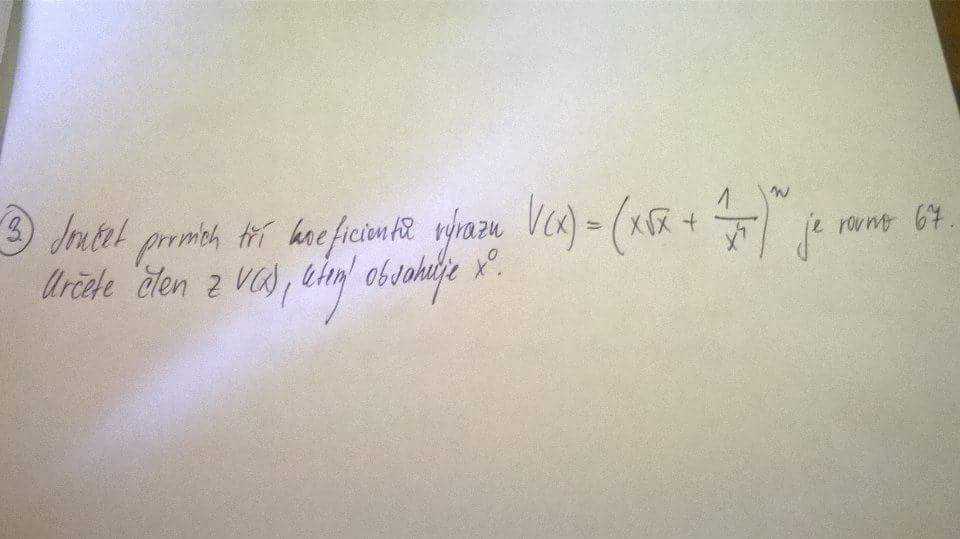 ③ Součet prvních tří koeficientů výrazu V(x) = (x√x + 1/x⁴)ⁿ je rovno 67.
Určete člen z V(x), který obsahuje x⁰.